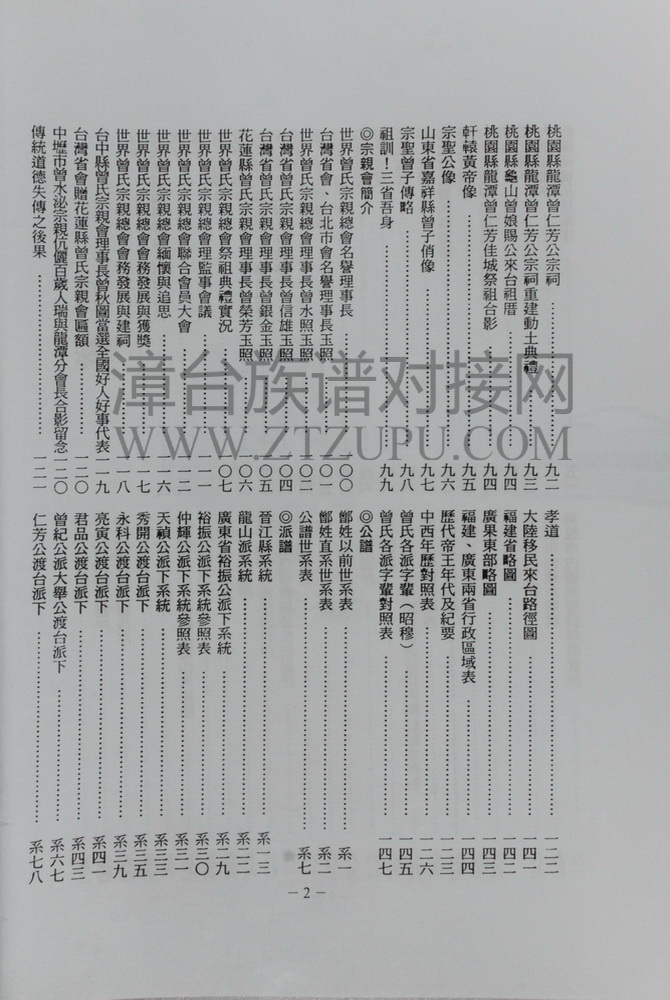 桃園縣龍潭曾仁芳公宗祠 九二
桃園縣龍潭曾仁芳公宗祠重建動土典禮 九三
桃園縣龜山曾娘賜公來台祖厝 九四
桃園縣龍潭曾仁芳佳城祭祖合影 九四
軒轅黃帝像 九五
宗聖公像 九六
山東省嘉祥縣曾子俏像 九七
宗聖曾子傳略 九八
祖訓！三省吾身 九九
◎宗親會簡介
世界曾氏宗親總會名譽理事長 一〇〇
台灣省會、台北市會名譽理事長玉照 一〇一
世界曾氏宗親總會理事長曾水照玉照 一〇二
台灣省曾氏宗親會理事長曾信雄玉照 一〇四
台灣省曾氏宗親會理事長曾銀金玉照 一〇五
花蓮縣曾氏宗親會理事長曾榮芳玉照 一〇六
世界曾氏宗親總會祭祖典禮實況 一〇七
世界曾氏宗親總會理監事會議 一一一
世界曾氏宗親總會聯合會員大會 一一二
世界曾氏宗親總會緬懷與追思 一一六
世界曾氏宗親總會會務發展與獲獎 一一七
世界曾氏宗親總會會務發展與建祠 一一八
台中縣曾氏宗親會理事長曾秋圖當選全國好人好事代表 一一九
台灣省會贈花蓮縣曾氏宗親會匾額 一二〇
中壢市曾水泌宗親伉儷百歲人瑞與龍潭分會長合影留念 一二〇
傳統道德失傳之後果 一二一
孝道 一二二
大陸移民來台路徑圖 一四一
福建省略圖 一四二
廣東東部略圖 一四三
福建、廣東兩省行政區域表 一四四
歷代帝王年代及紀要 一二三
中西年歷對照表 一二六
曾氏各派字輩（昭穆） 一四五
曾氏各派字輩對照表 一四七
◎公譜
鄫姓以前世系表 系一
鄫姓直系世系表 系二
公譜世系表 系七
◎派譜
晉江縣系統 系一三
龍山派系統 系二二
廣東省裕振公派下系統 系二九
裕振公派下系統參照表 系三〇
仲輝公派下系統參照表 系三一
天禎公派下系統 系三三
秀開公渡台派下 系三五
永科公渡台派下 系三九
亮寅公渡台派下 系四一
君品公渡台派下 系四三
曾紀公派大舉公渡台派下 系六七
仁芳公渡台派下 系七八
－2－
漳台族谱对接网
WWW.ZTZUPU.COM